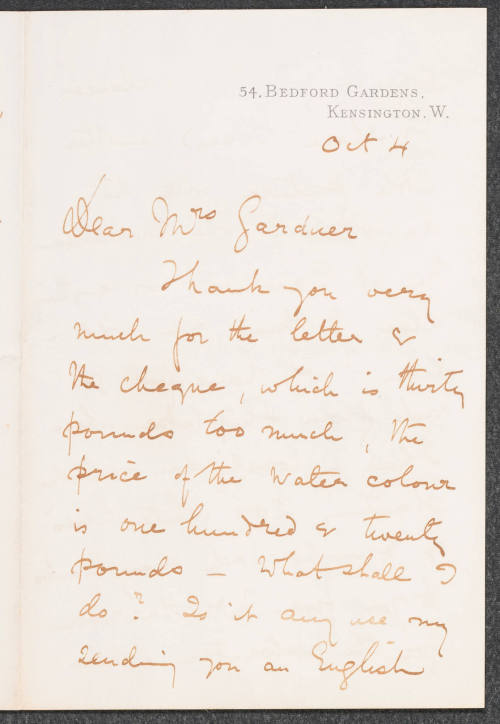 54, BEDFORD GARDENS,
KENSINGTON. W.
Oct 4
Dear Mrs Gardner
Thank you very
much for the letter &
the cheque, which is thirty
pounds too much, the
price of the water colour
is one hundred & twenty
pounds — What shall I
do? Is it any use my
sending you an English